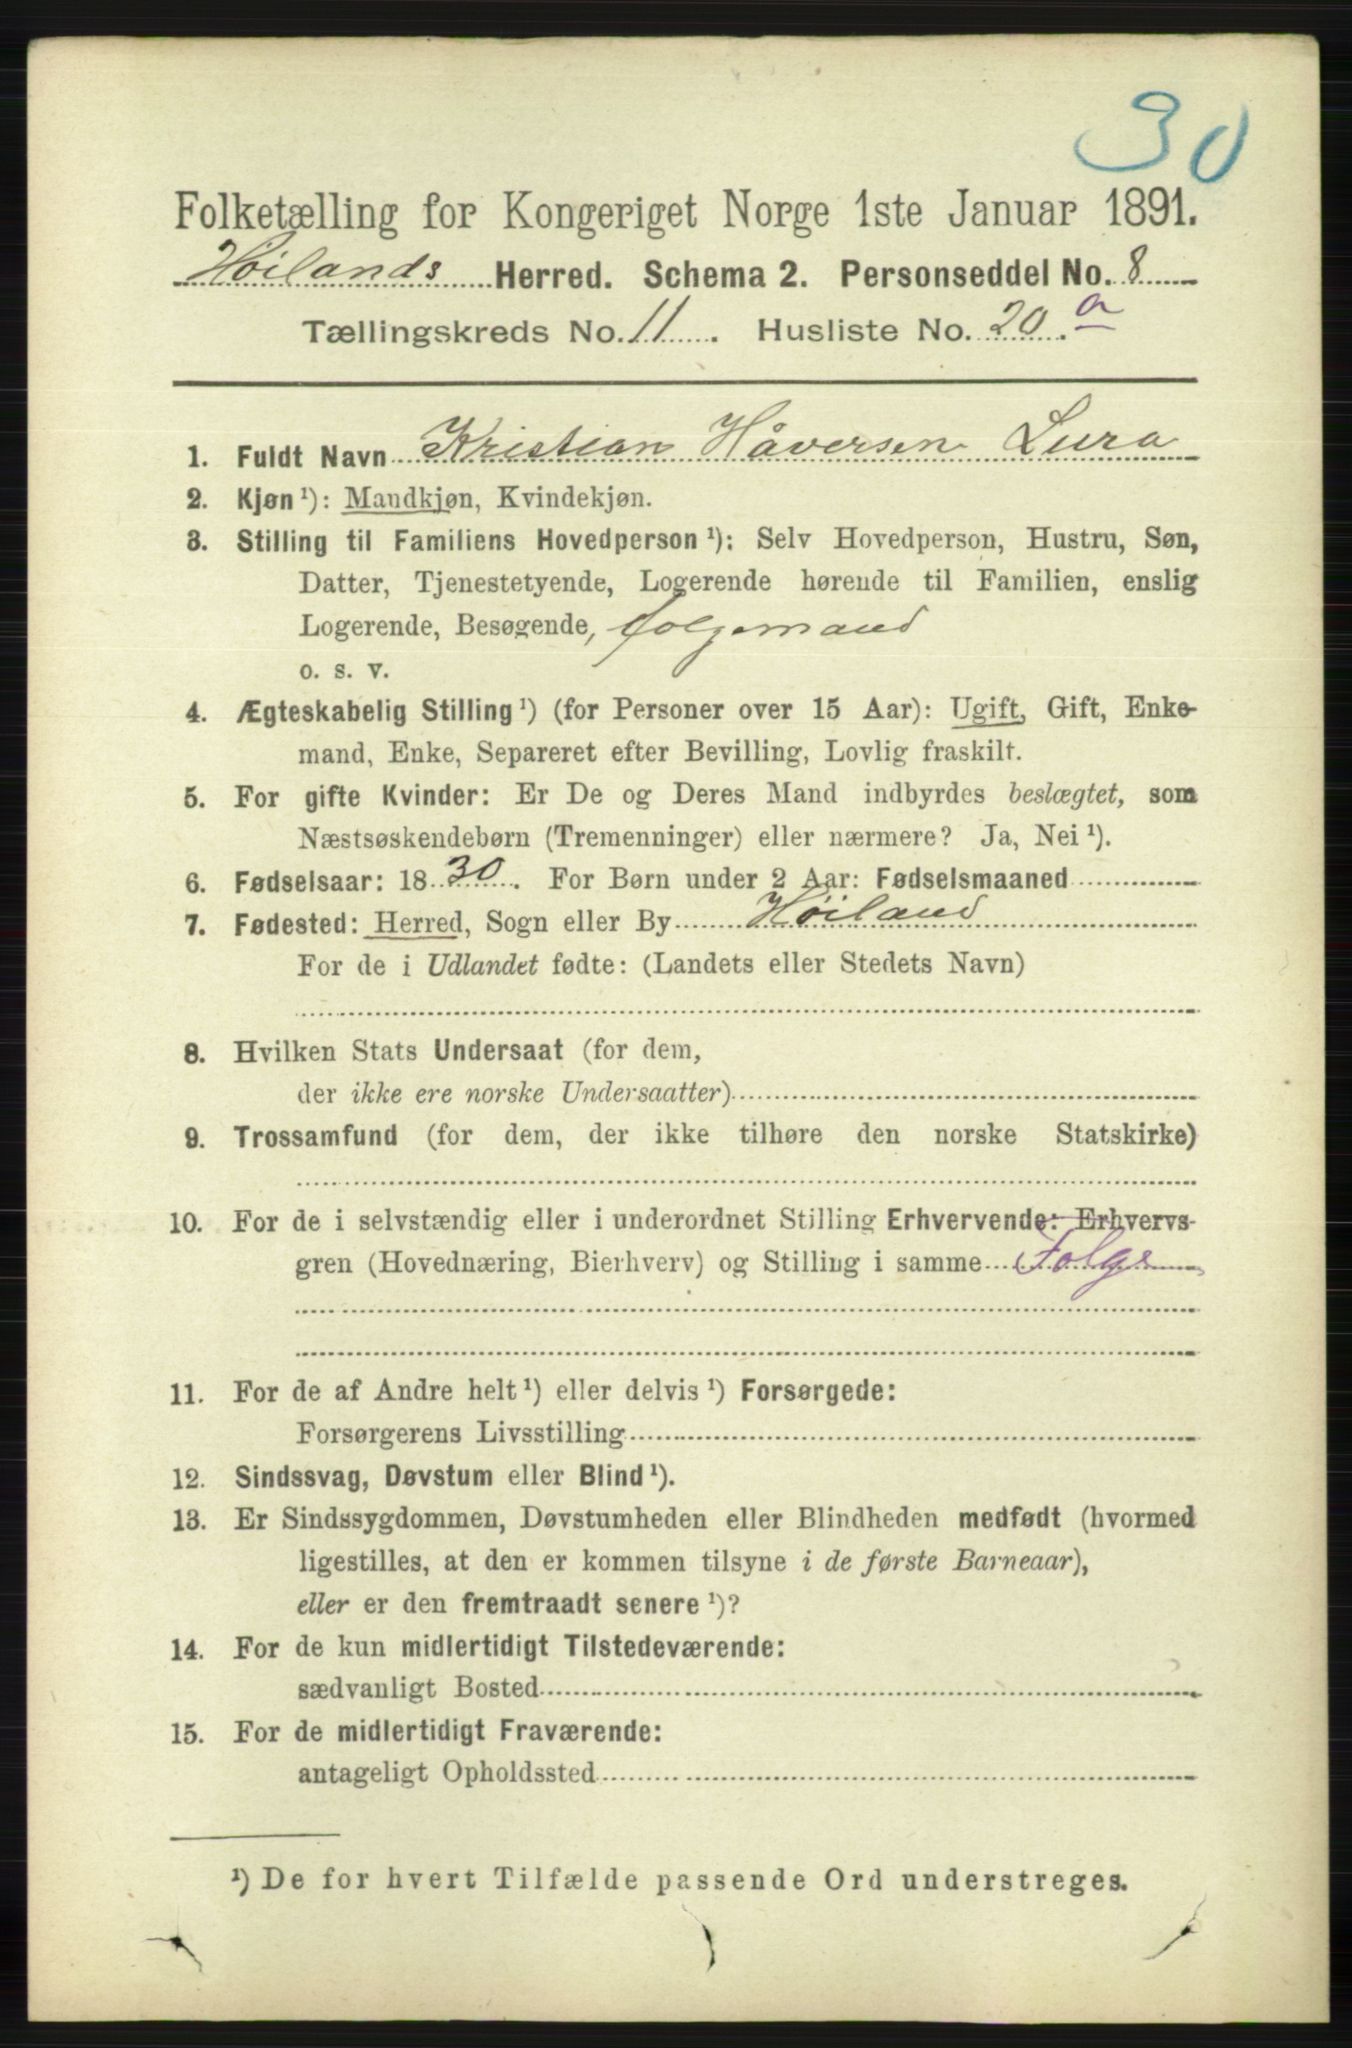 30
Folketælling for Kongeriget Norge 1ste Januar 1891.
Höilands Herred. Schema 2. Personseddel No. 8
Tællingskreds No. 11. Husliste No. 20. a
1. Fuldt Navn Kristian Håversen Lura
2. Kjøn ¹): Mandkjøn, Kvindekjøn.
3. Stilling til Familiens Hovedperson ¹): Selv Hovedperson, Hustru, Søn,
Datter, Tjenestetyende, Logerende hørende til Familien, enslig
Logerende, Besøgende, folgemand
o. s. v.
4. Ægteskabelig Stilling ¹) (for Personer over 15 Aar): Ugift, Gift, Enke-
mand, Enke, Separeret efter Bevilling, Lovlig fraskilt.
5. For gifte Kvinder: Er De og Deres Mand indbyrdes beslægtet, som
Næstsøskendebørn (Tremenninger) eller nærmere? Ja, Nei ¹).
6. Fødselsaar: 1830. For Børn under 2 Aar: Fødselsmaaned
7. Fødested: Herred, Sogn eller By Höiland
For de i Udlandet fødte: (Landets eller Stedets Navn)
8. Hvilken Stats Undersaat (for dem,
der ikke ere norske Undersaatter)
9. Trossamfund (for dem, der ikke tilhøre den norske Statskirke)
10. For de i selvstændig eller i underordnet Stilling Erhvervende: Erhvervs-
gren (Hovednæring, Bierhverv) og Stilling i samme Folge
11. For de af Andre helt ¹) eller delvis ¹) Forsørgede:
Forsørgerens Livsstilling
12. Sindssvag, Døvstum eller Blind ¹).
13. Er Sindssygdommen, Døvstumheden eller Blindheden medfødt (hvormed
ligestilles, at den er kommen tilsyne i de første Barneaar),
eller er den fremtraadt senere ¹)?
14. For de kun midlertidigt Tilstedeværende:
sædvanligt Bosted
15. For de midlertidigt Fraværende:
antageligt Opholdssted
¹) De for hvert Tilfælde passende Ord understreges.